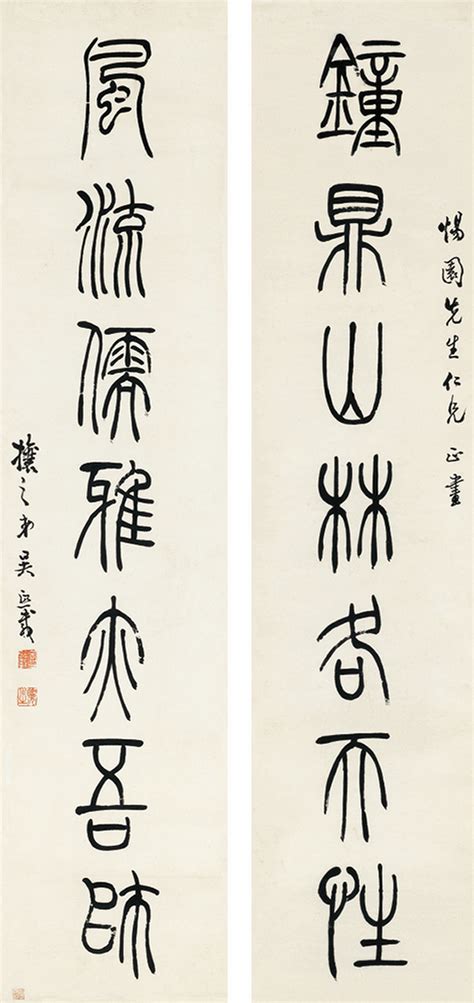 鐘鼎山林各天性
惕園先生仁兄正
風流儒雅亦吾師
攘之弟吳熙載